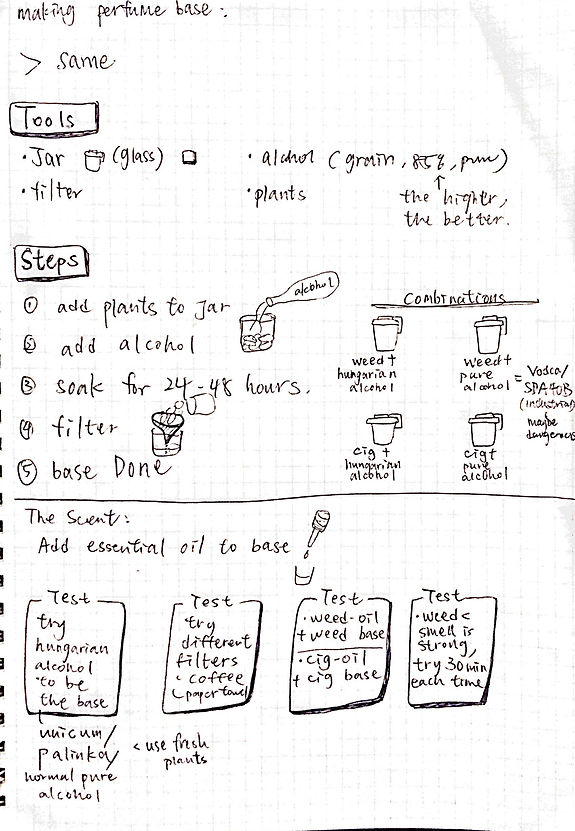 making perfume base:
> same
Tools
· Jar (glass)
· filter
· alchol (grain, 85%, pure)
↑
the highter,
the better.
· plants
Steps
① add plants to Jar
② add alcohol
③ soak for 24-48 hours.
④ filter
⑤ base Done
alcohol
Combinations
weed +
hungarian
alcohol
weed +
pure
alcohol
= Vodca/
(industrial)
maybe
dangerous
cig +
hungarian
alcohol
cig +
pure
alcohol
The Scent:
Add essential oil to base
Test
try
hungarian
alcohol
to be
the base
unicum/
palinka/
normal pure
alcohol
< use fresh
plants
Test
· try
different
filters
· coffee
paper towel
Test
· weed-oil
+ weed base
· cig-oil
+ cig base
Test
· weed <
smell is
strong,
try 30 min
each time